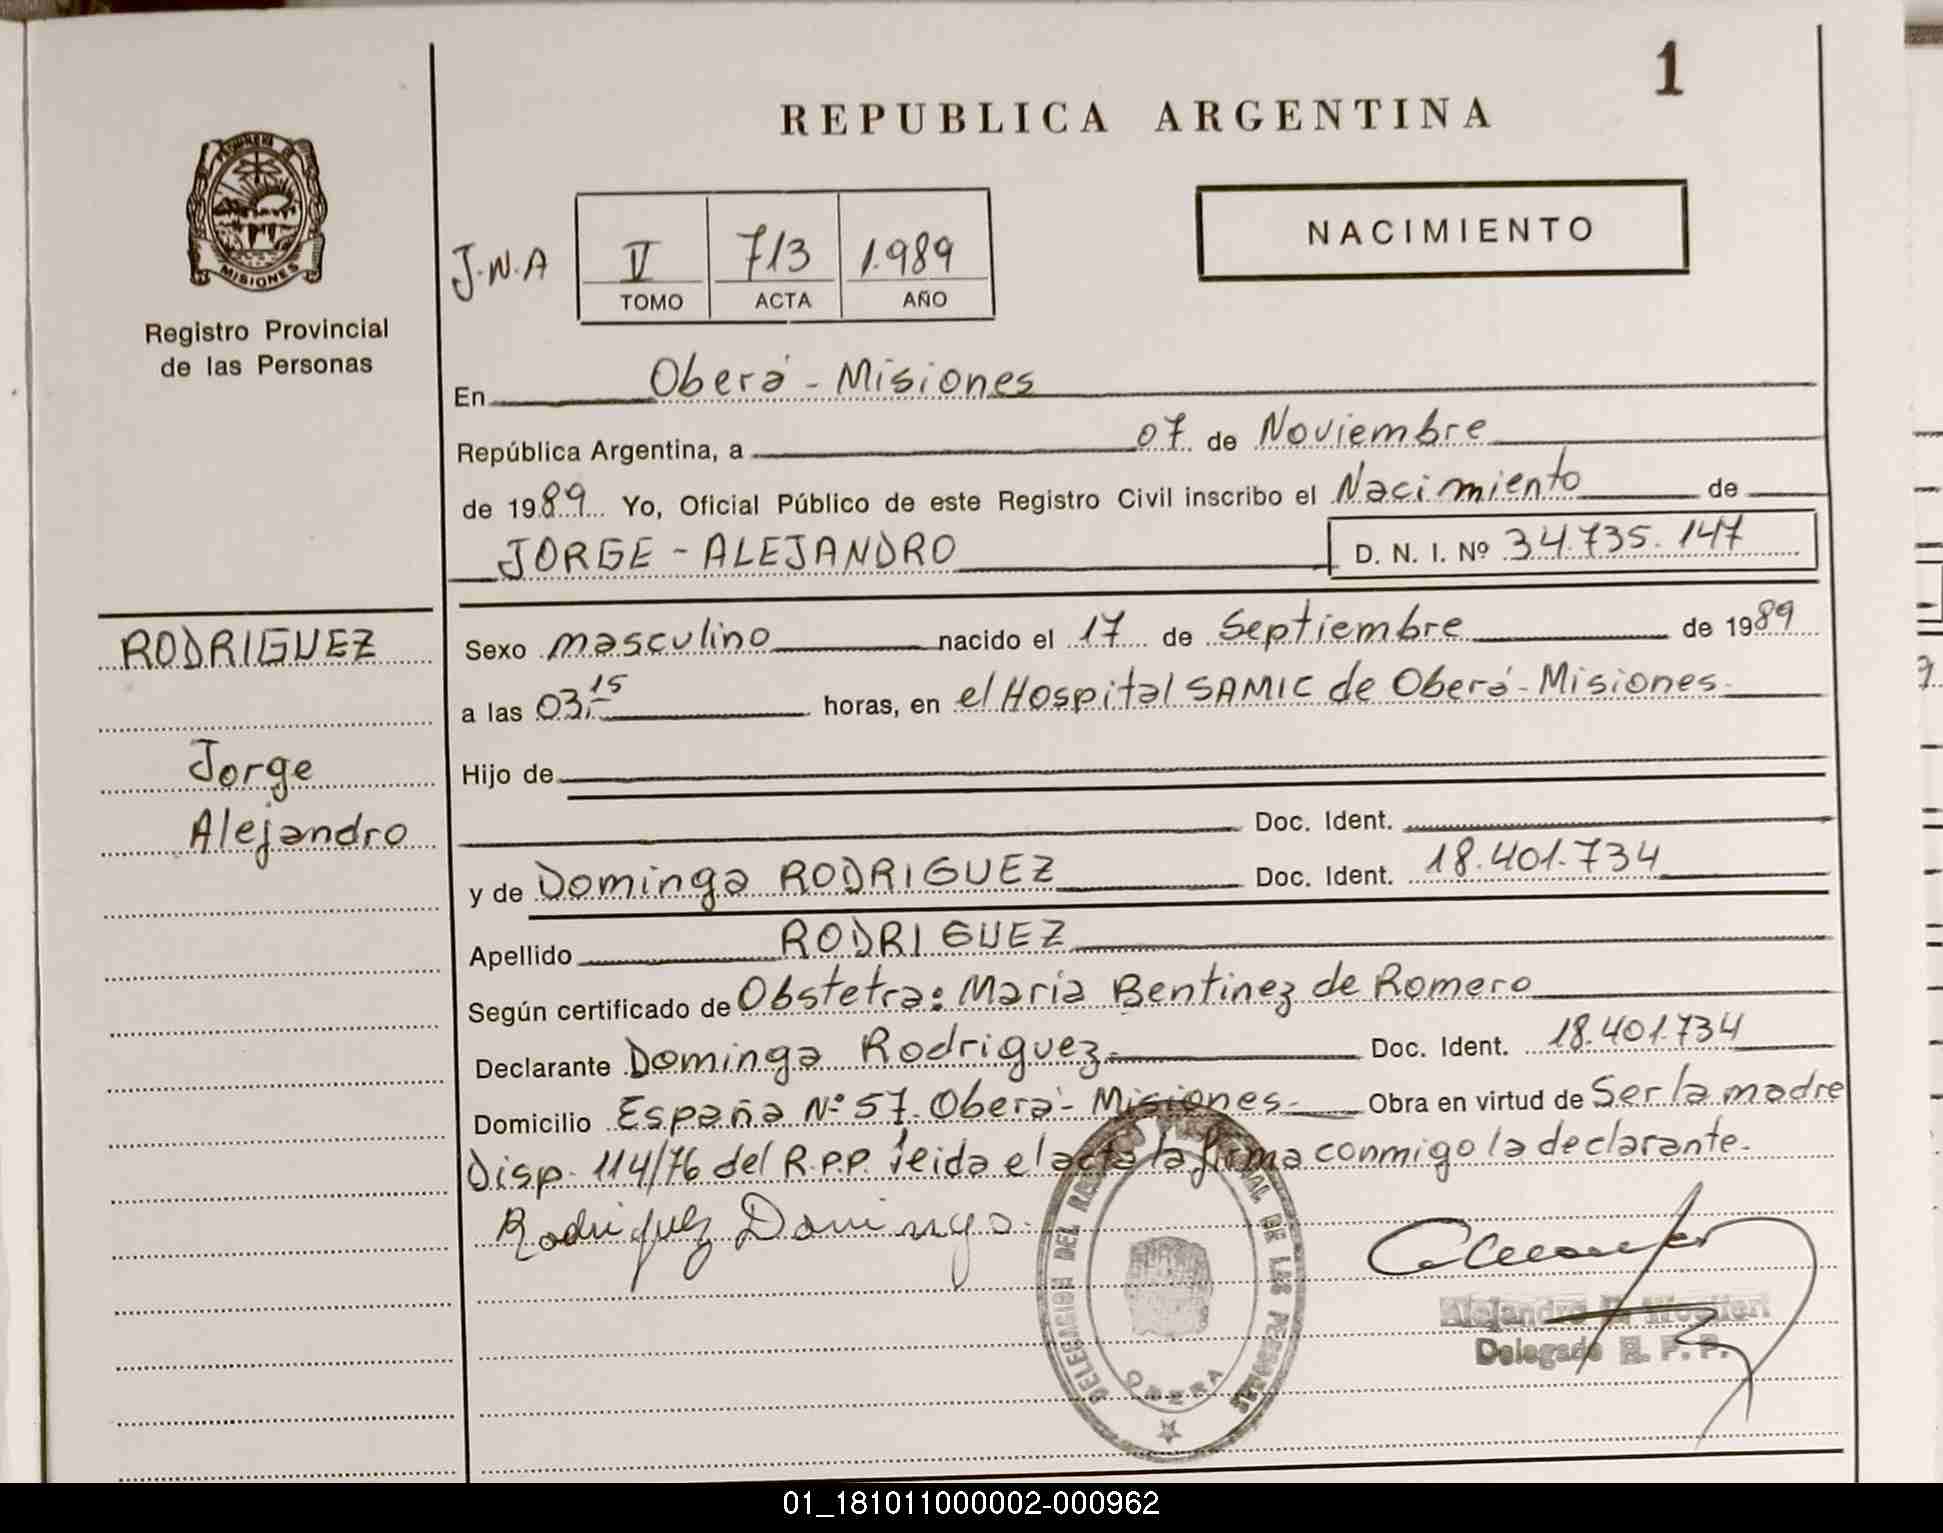 1
REPUBLICA ARGENTINA
NACIMIENTO
J.N.A
V 713 1.989
TOMO ACTA AÑO
MISIONES
Registro Provincial
de las Personas
En Oberá - Misiones
República Argentina, a 07 de Noviembre
de 1989 Yo, Oficial Público de este Registro Civil inscribo el Nacimiento de
JORGE - ALEJANDRO D. N. I. Nº 34.735.147
RODRIGUEZ
Jorge
Alejandro
Sexo masculino nacido el 17 de Septiembre de 1989
a las 03,15 horas, en el Hospital SAMIC de Oberá - Misiones
Hijo de
Doc. Ident.
y de Dominga RODRIGUEZ Doc. Ident. 18.401.734
Apellido RODRIGUEZ
Según certificado de Obstetra: María Bentinez de Romero
Declarante Dominga Rodriguez Doc. Ident. 18.401.734
Domicilio España Nº 57. Oberá - Misiones Obra en virtud de Ser la madre
Disp. 114/76 del R.P.P. leida el acta la firma conmigo la declarante.
Rodriguez Dominga
DELEGACION DEL REGISTRO PROVINCIAL DE LAS PERSONAS
OBERA
Alejandro
Delegado R. P. P.
01_181011000002-000962